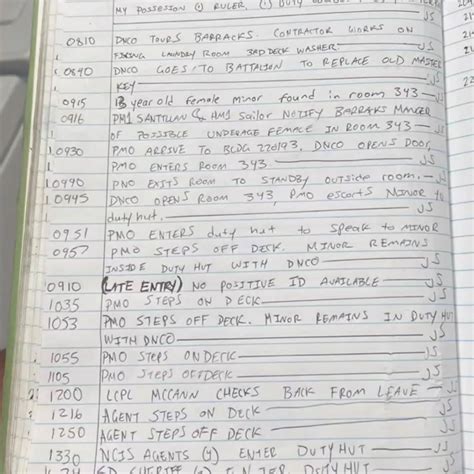 MY POSSESION (1) RULER (1) DUTY
JS
0810 DNCO TOURS BARRACKS. CONTRACTOR WORKS ON
FIXING LAUNDRY ROOM 3RD DECK WASHER JS
0840 DNCO GOES TO BATTALION TO REPLACE OLD MASTER
KEY JS
0915 13 year old female minor found in room 343 JS
0916 PM1 SANTILLAN & AM1 Sailor NOTIFY BARRAKS MANAGER
OF POSSIBLE UNDERAGE FEMALE IN ROOM 343 JS
0930 PMO ARRIVE TO BLDG 220193, DNCO OPENS DOOR,
PMO ENTERS ROOM 343. JS
0940 EXITS ROOM TO STANDBY OUTSIDE ROOM. JS
0945 DNCO OPENS ROOM 343, PMO escorts MINOR to
duty hut. JS
0951 PMO ENTERS duty hut to speak to MINOR
0957 PMO STEPS OFF DECK. MINOR REMAINS
INSIDE DUTY HUT WITH DNCO JS
0910 (LATE ENTRY) NO POSITIVE ID AVAILABLE JS
1035 PMO STEPS ON DECK JS
1053 PMO STEPS OFF DECK. MINOR REMAINS IN DUTY HUT
WITH DNCO JS
1055 PMO STEPS ON DECK JS
1105 PMO STEPS OFF DECK JS
1200 LCPL MCCANN CHECKS BACK FROM LEAVE JS
1216 AGENT STEPS ON DECK JS
1250 AGENT STEPS OFF DECK JS
1330 NCIS AGENTS (4) ENTER DUTY HUT JS
SHERIFF